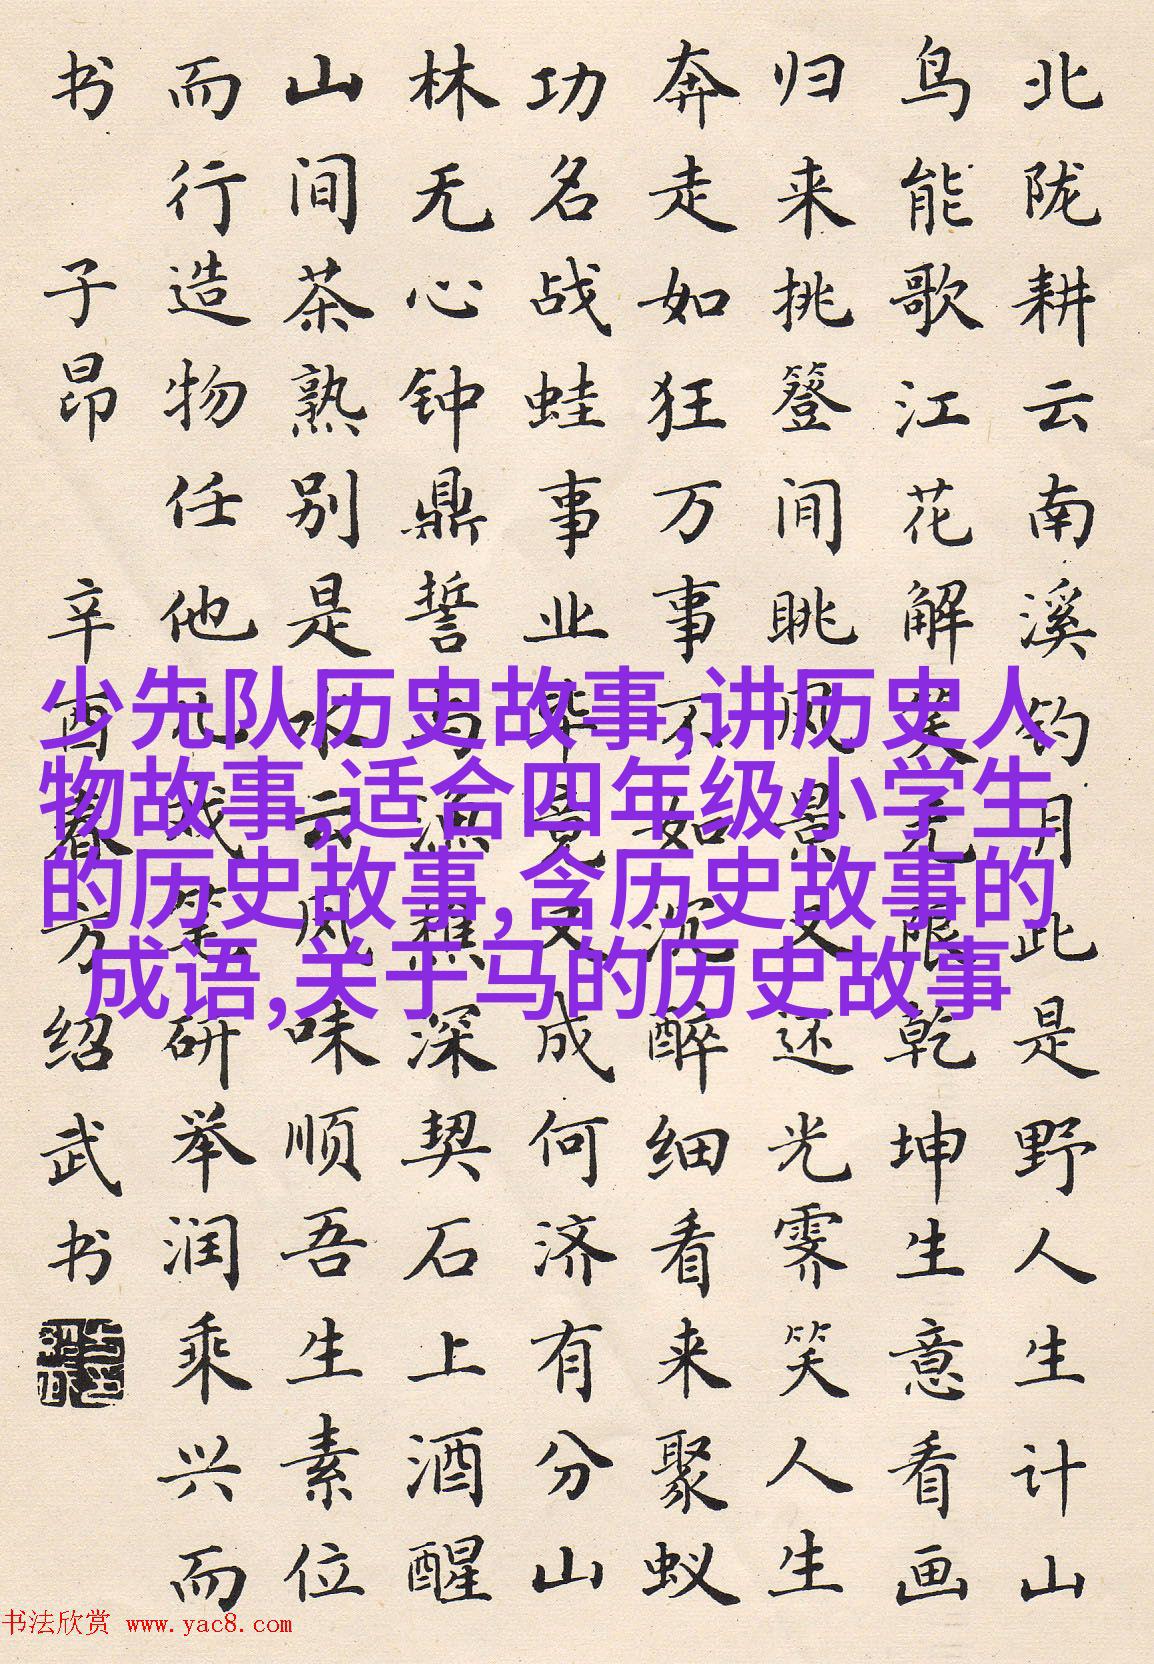 北陇耕云南溪钓月此是野人生计山
鸟能歌江花解笑无限乾坤生意看画
归来挑簦间眺风景又还光霁笑人生
奔走如狂万事不如沉醉细看来聚蚁
功名战蛙事业毕竟又成何济有分山
林无心钟鼎誓与渔樵深契石上酒醒
山间茶熟别是水云风味顺吾生素位
而行造物任他儿戏笔研举润乘兴而
书 子昂 辛酉春方绍武书
少先队历史故事,讲历史人
物故事,适合四年级小学生
的历史故事,含历史故事的
成语,关于马的历史故事
书法欣赏 www.yac8.com